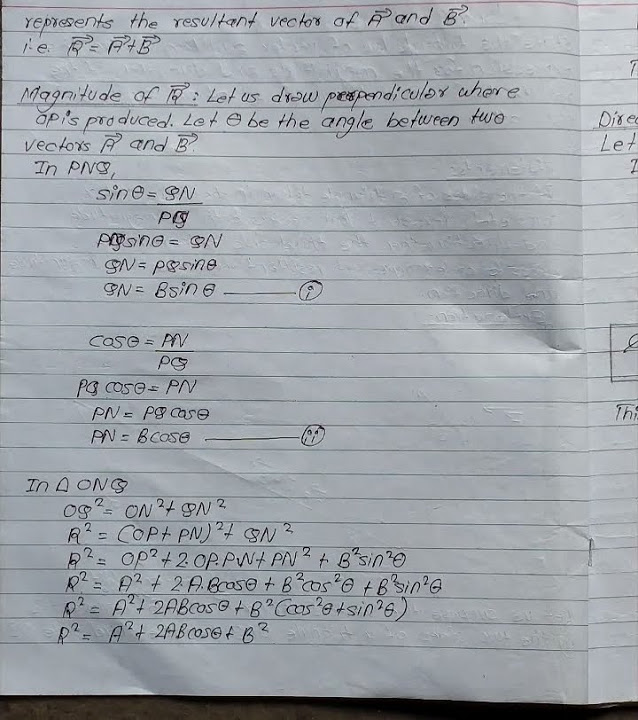 represents the resultant vector of A⃗ and B⃗.
i.e. R⃗ = A⃗+B⃗
Magnitude of R⃗ : Let us draw perpendiculor where
OP is produced. Let θ be the angle between two
vectors A⃗ and B⃗.
In PNQ,
sinθ = QN
PQ
PQsinθ = QN
QN = PQsinθ
QN = Bsinθ ——— (i)
cosθ = PN
PQ
PQ cosθ = PN
PN = PQ cosθ
PN = Bcosθ ——— (ii)
In Δ ONQ
OQ² = ON² + QN²
R² = (OP + PN)² + QN²
R² = OP² + 2.OP.PN + PN² + B²sin²θ
R² = A² + 2.A.Bcosθ + B²cos²θ + B²sin²θ
R² = A² + 2ABcosθ + B²(cos²θ + sin²θ)
R² = A² + 2ABcosθ + B²
T
Direc
Let
I
Thi